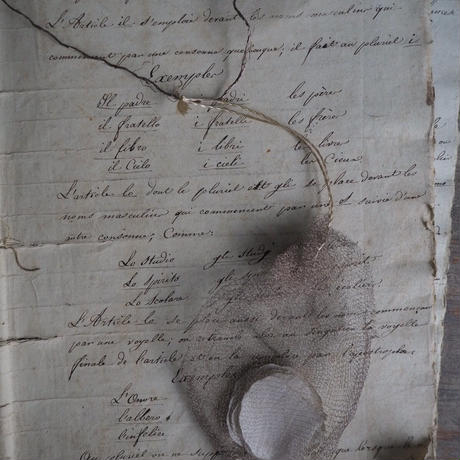 L'Article il s'emploie devant les noms masculins qui
commencent par une consonne quelconque; il fait au pluriel i
Exemples
Il padre i padri les père
il fratello i fratelli les frères
il libro i libri les livres
il Cielo i cieli les Cieux
L'article lo dont le pluriel est gli se place devant les
noms masculins qui commencent par une S suivie d'une
autre consonne; Comme:
Lo studio gli studj
Lo spirito gli
Lo scolare
L'Article lo se place aussi devant les noms commençant
par une voyelle; on retranche alors au singulier la voyelle
finale de l'article et on la remplace par l'apostrophe.
Exemples
L'Onore
l'albero
l'infelice
Au pluriel on ne lorsque